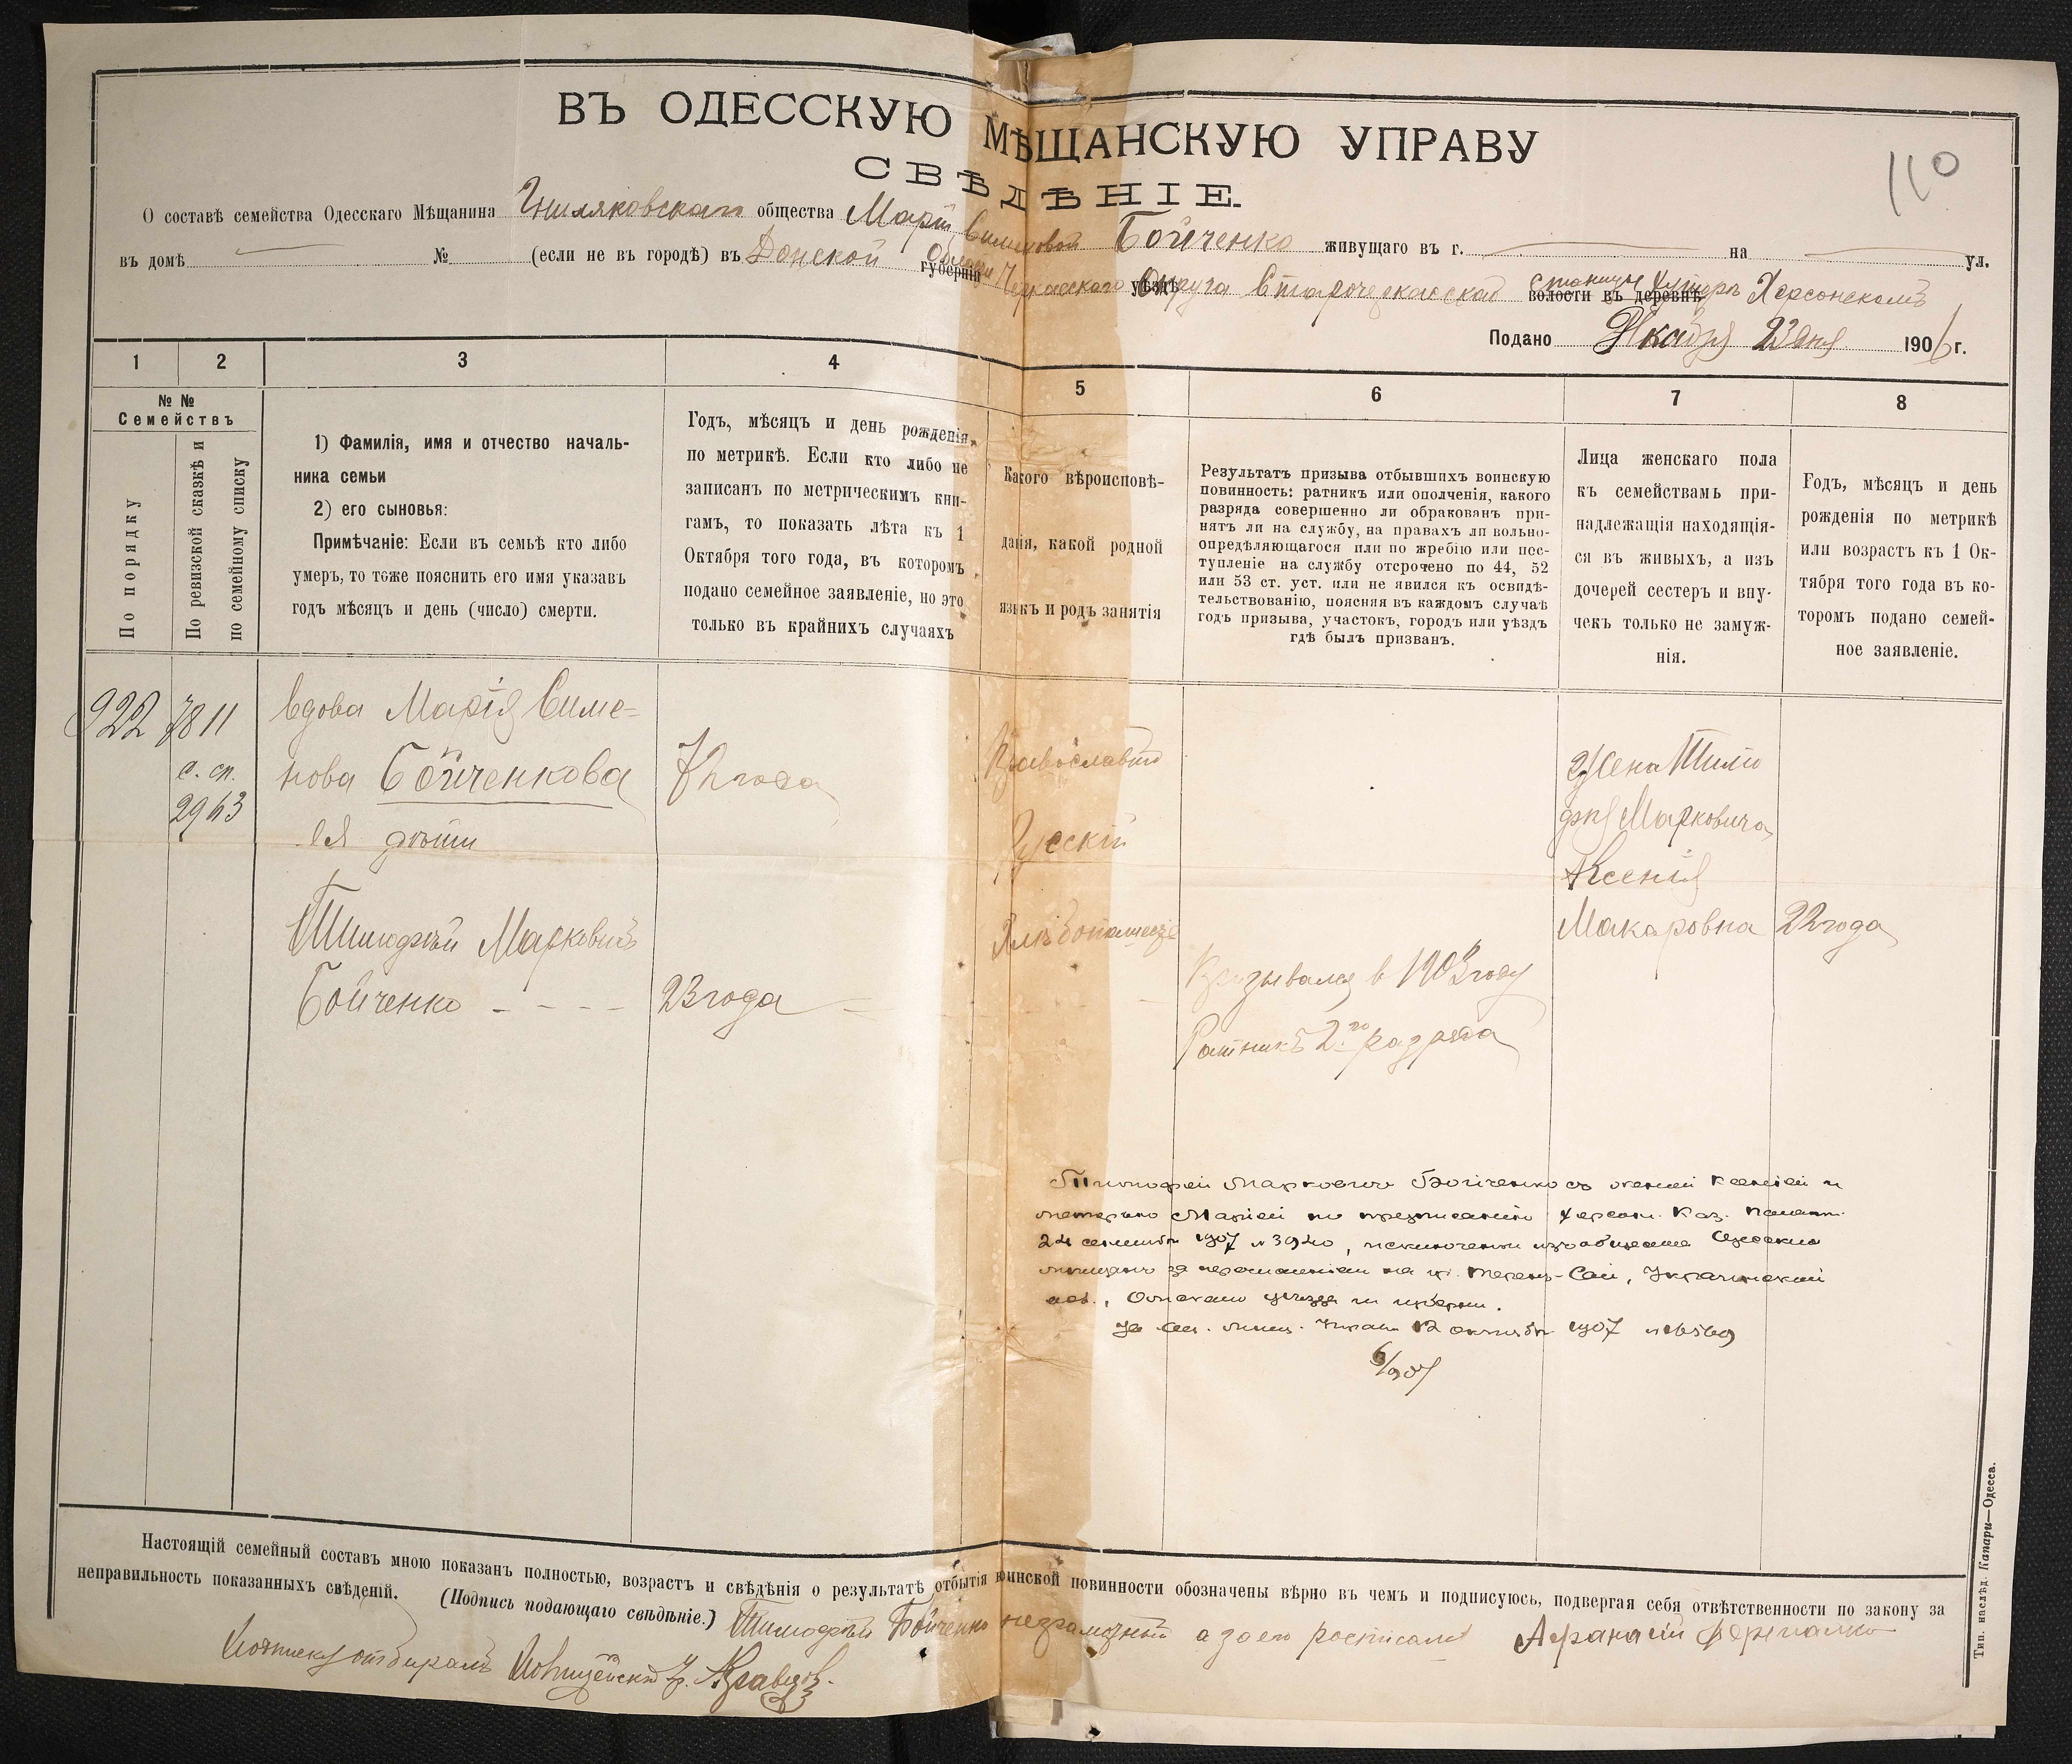 110
ВЪ ОДЕССКУЮ МѢЩАНСКУЮ УПРАВУ
СВѢДѢНІЕ.
О составѣ семейства Одесскаго Мѣщанина Гниляковскаго общества Маріи Симоновой Бойченко живущаго въ г. на
въ домѣ № (если не въ городѣ) въ Донской губерніи Области Черкасскаго уѣзда Округа Старочеркасской волости въ деревнѣ станицы Хуторѣ Херсонскомъ ул.
Подано Декабря 23 дня 1906 г.
1 2 3 4 5 6 7 8
№ №
Семействъ
По порядку
По ревизской сказкѣ и
по семейному списку
1) Фамилія, имя и отчество началь-
ника семьи
2) его сыновья:
Примѣчаніе: Если въ семьѣ кто либо
умеръ, то тоже пояснить его имя указавъ
годъ мѣсяцъ и день (число) смерти.
Годъ, мѣсяцъ и день рожденія,
по метрикѣ. Если кто либо не
записанъ по метрическимъ кни-
гамъ, то показать лѣта къ 1
Октября того года, въ которомъ
подано семейное заявленіе, но это
только въ крайнихъ случаяхъ
Какого вѣроисповѣ-
данія, какой родной
языкъ и родъ занятія
Результатъ призыва отбывшихъ воинскую
повинность: ратникъ или ополченія, какого
разряда совершенно ли обракованъ при-
нятъ ли на службу, на правахъ ли вольно-
опредѣляющагося или по жребію или пос-
тупленіе на службу отсрочено по 44, 52
или 53 ст. уст. или не явился къ освидѣ-
тельствованію, поясняя въ каждомъ случаѣ
годъ призыва, участокъ, городъ или уѣздъ
гдѣ былъ призванъ.
Лица женскаго пола
къ семействамъ при-
надлежащія находящія-
ся въ живыхъ, а изъ
дочерей сестеръ и вну-
чекъ только не замуж-
нія.
Годъ, мѣсяцъ и день
рожденія по метрикѣ
или возрастъ къ 1 Ок-
тября того года въ ко-
торомъ подано семей-
ное заявленіе.
922 7811
с. сп.
2963
вдова Марія Симе-
нова Бойченкова
ея дѣти
Тимофѣй Марковичъ
Бойченко
72 года
23 года
Православный
Русскій
Хлебопашецъ
Призывался в 1903 году
Ратникъ 2го разряда
Жена Тимо
фея Марковича
Ксенія
Макаровна
22 года
Тимофей Маркович Бойченко съ женой Ксенией и
матерью Марией по предписанию Херсон. Каз. Палаты
24 сентября 1907 № 3940, исключены из общества Одесских
мещанъ за перечислением на уч. Терень-Сай, Украинской
вол., Омскаго уезда и губерни.
1907
6/907
Настоящій семейный составъ мною показанъ полностью, возрастъ и свѣдѣнія о результатѣ отбытія воинской повинности обозначены вѣрно въ чемъ и подписуюсь, подвергая себя отвѣтственности по закону за
неправильность показанныхъ свѣденій. (Подпись подающаго свѣдѣніе.) Тимофей Бойченко неграмотный а за его росписался Афанасий
Подписку отбиралъ Полицейскій Ур. Кравцов.
Тип. наслѣд. Капари—Одесса.